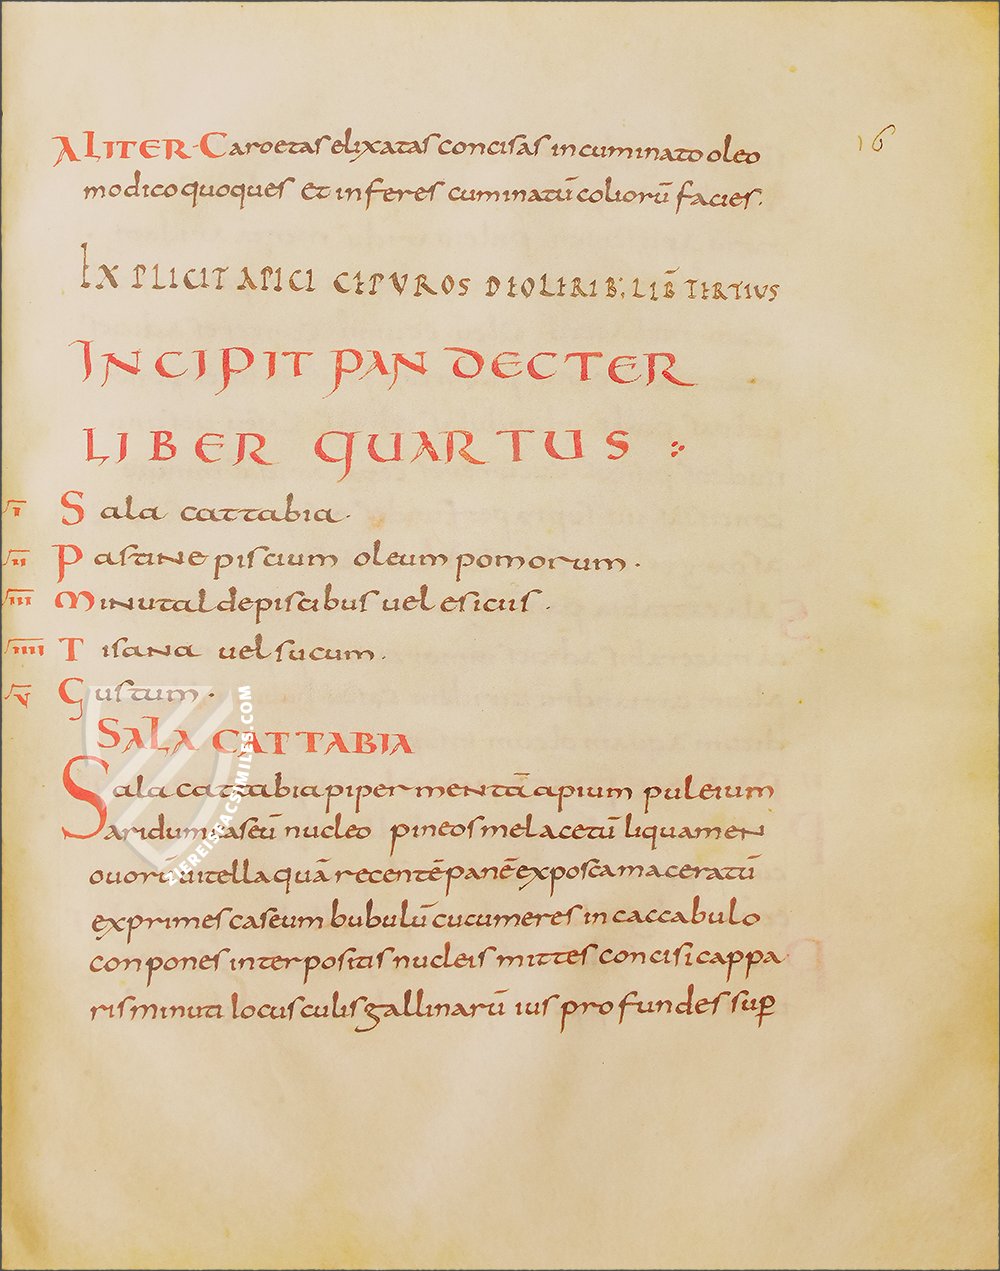 16
ALITER · Caroetas elixatas concisas in cuminato oleo
modico quoques et inferes cuminatū coliorū facies.
EXPLICIT APICI CEPUROS DEOLERIB; LIB̄ TERTIUS
INCIPIT PANDECTER
LIBER QUARTUS :·
I Sala cattabia.
II Pastine piscium oleum pomorum.
III Minutal de piscibus vel esicus.
IIII Tisana vel sucum.
V Gustum.
SALA CATTABIA
Sala cattabia piper mentā apium puleium
aridum caseū nucleo pineos mel acetū liquamen
ovorū vitella quā recentē panē ex posca maceratū
exprimes caseum bubulū cucumeres in caccabulo
conpones interpositis nucleis mittes concisi cappa
ris minuti locusculis gallinarū ius profundes sup̄
ZIEREISFACSIMILES.COM